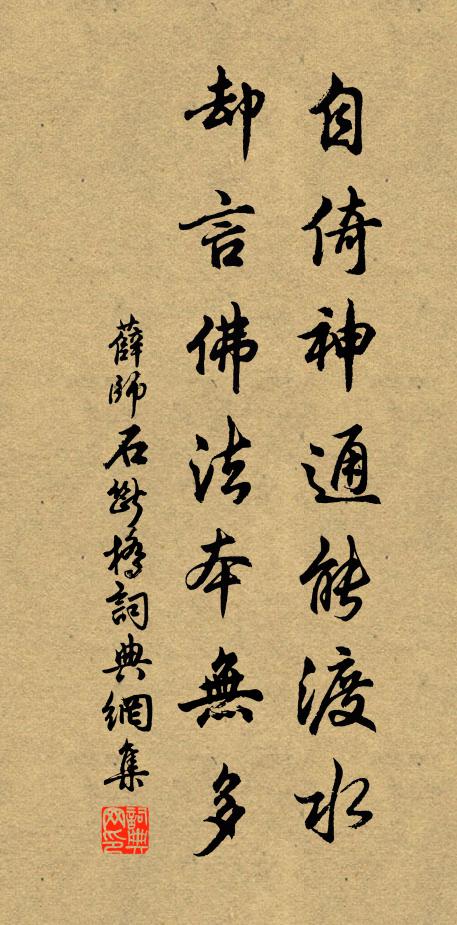 自倚神通能渡水
却言佛法本無多
薛師石斷橋詞典網集
詞典网印